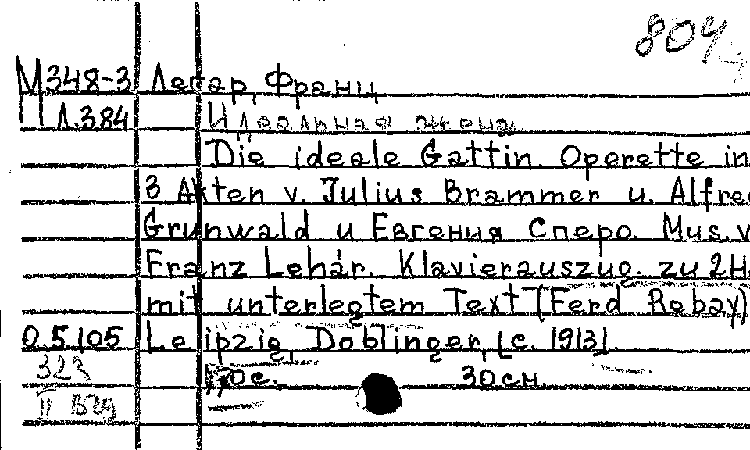 804
М348-3 Легар, Франц
Л.384 Идеальная жена
Die ideale Gattin. Operette in
3 Akten v. Julius Brammer u. Alfred
Grunwald и Евгения Сперо. Mus. v.
Franz Lehár. Klavierauszug. zu 2 H.
mit unterlegtem Text (Ferd Rebay)
05105 Leipzig, Doblinger, [c. 1913]
323 с. 30 см
II